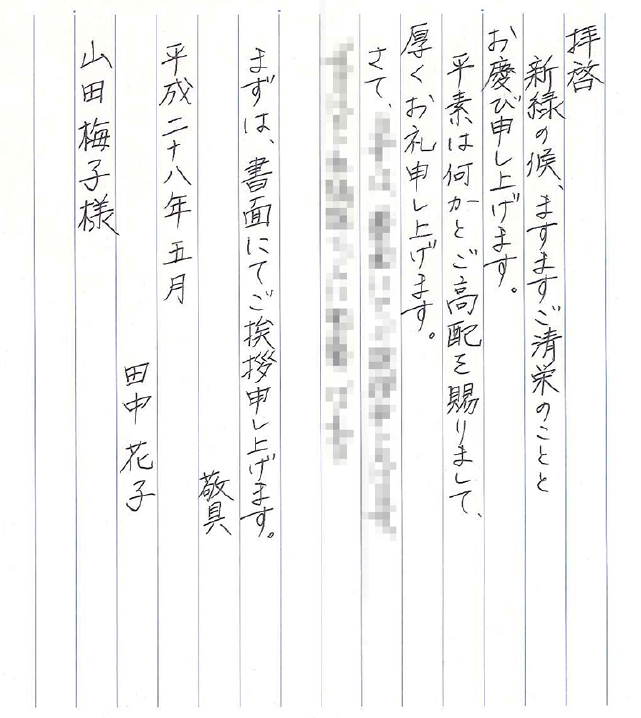 拝啓
新緑の候、ますますご清栄のことと
お慶び申し上げます。
平素は何かとご高配を賜りまして、
厚くお礼申し上げます。
さて、
まずは、書面にてご挨拶申し上げます。
敬具
平成二十八年五月
田中花子
山田梅子様